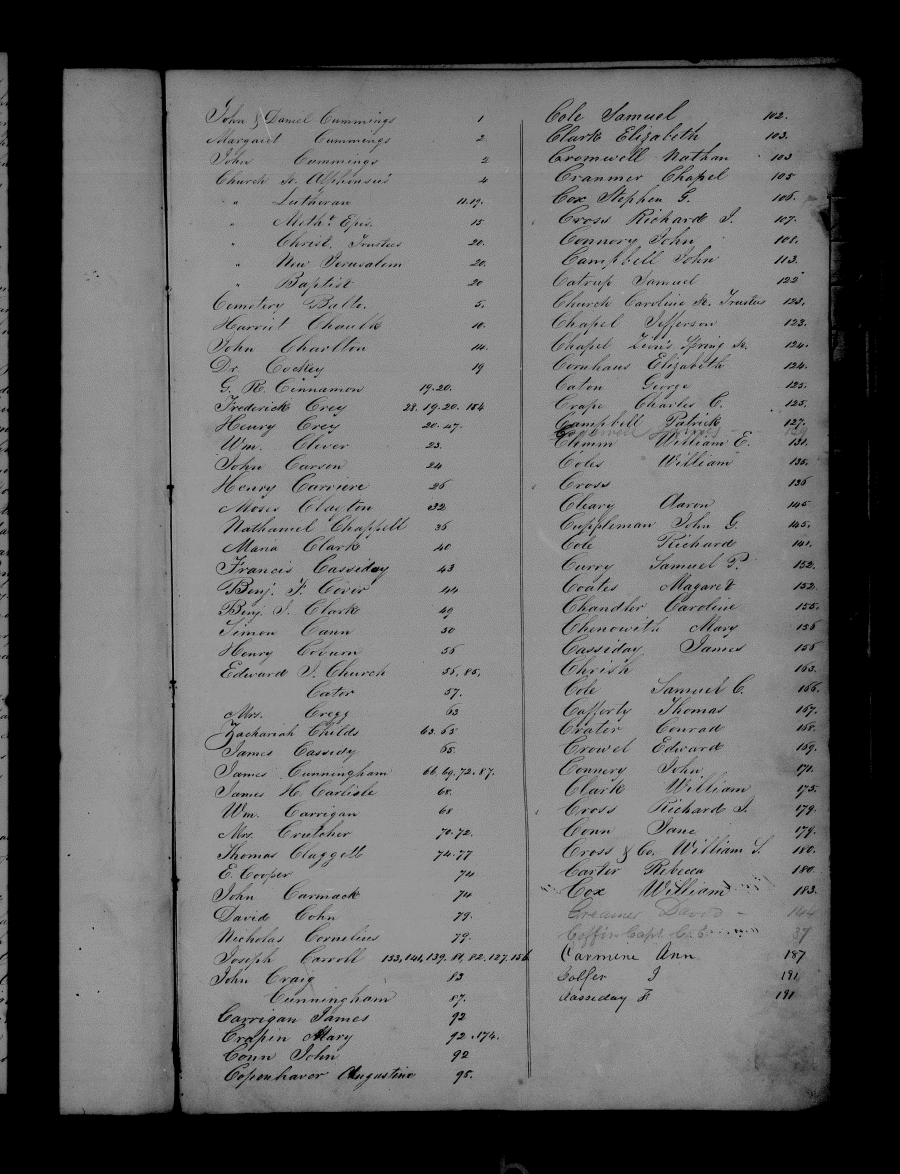 John & Daniel Cummings 1
Margaret Cummings 2
John Cummings 2
Church St. Alphonsus 4
" Lutheran 11.19.
" Meth. Epis. 15
" Christ. Trustees 20.
" New Jerusalem 20.
" Baptist 20
Cemetery Balto. 5.
Harriet Chaulk 10.
John Charlton 14.
Dr. Cockey 19
G. R. Cinnamon 19.20.
Frederick Crey 28.19.20.154
Henry Crey 20.47.
Wm. Cliver 23.
John Carson 24
Henry Carriere 26
Moses Clayton 32
Nathaniel Chappell 36
Maria Clark 40
Francis Cassiday 43
Benj. F. 44
Benj. J. Clark 49
Simon Cann 50
Henry Coburn 56
Edward J. Church 56, 85,
Cator 57.
Mrs. Cregg 63
Zachariah Childs 63.65
James Cassidy 65.
James Cunningham 66, 69, 72. 87.
James H. Carlisle 68.
Wm. Carrigan 68
Mrs. Crutcher 70.72.
Thomas Claggett 74.77
E. Cooper 74
John Carmack 74
David Cohn 79.
Nicholas Cornelius 79.
Joseph Carroll 153,141,139. 81, 82. 127. 156
John Craig 83
Cunningham 87.
Carrigan James 92
Crapin Mary 92.174.
Conn John 92
Copenhaver Augustine 95.
Cole Samuel 102.
Clark Elizabeth 103.
Cromwell Nathan 103
Cranmer Chapel 105
Cox Stephen G. 106.
Cross Richard J. 107.
Connory John 108.
Campbell John 113.
Catrup Samuel 122
Church Caroline St. Trustees 123.
Chapel Jefferson 123.
Chapel Zion's Spring St. 124.
Cornhaus Elizabeth 124.
Caton George 125.
Crape Charles C. 125.
Campbell Patrick 127.
Climm William E. 131.
Coles William 135.
Cross 136
Cleary Aaron 145
Cuppleman John G. 145.
Cole Richard 141.
Curry Samuel P. 152.
Coates Magaret 152
Chandler Caroline 155.
Chenowith Mary 156
Cassiday James 156
Chrish 163.
Cole Samuel C. 166.
Cafferty Thomas 167.
Crater Conrad 168.
Crowel Edward 169.
Connery John 171.
Clark William 175.
Cross Richard J. 179.
Conn Jane 179.
Cross & Co. William S. 180.
Carter Rebecca 180
Cox William 183.
Creamer David - 144
Coffin Capt. C. E. 37
Carmine Ann 187
Colfer J 191
Cassiday F 191